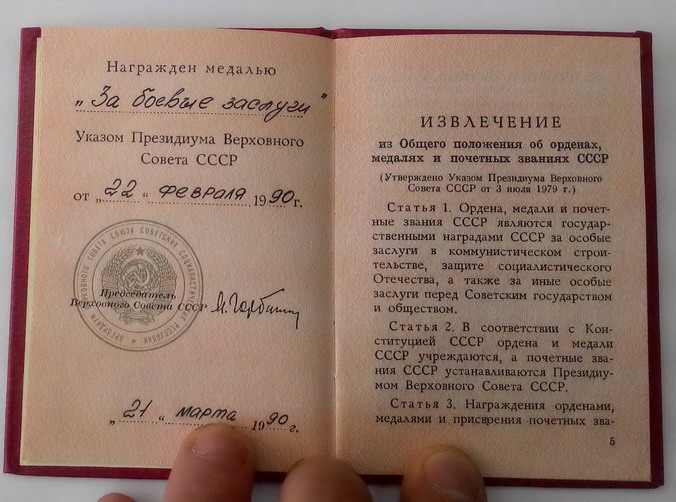 Награжден медалью
„За боевые заслуги"
Указом Президиума Верховного
Совета СССР
от „22" февраля 1990 г.
ПРЕЗИДИУМ ВЕРХОВНОГО СОВЕТА СОЮЗА СОВЕТСКИХ СОЦИАЛИСТИЧЕСКИХ РЕСПУБЛИК
Председатель
Верховного Совета СССР М. Горбачев
„21" марта 1990 г.
ИЗВЛЕЧЕНИЕ
из Общего положения об орденах,
медалях и почетных званиях СССР
(Утверждено Указом Президиума Верховного
Совета СССР от 3 июля 1979 г.)
Статья 1. Ордена, медали и почет-
ные звания СССР являются государ-
ственными наградами СССР за особые
заслуги в коммунистическом строи-
тельстве, защите социалистического
Отечества, а также за иные особые
заслуги перед Советским государством
и обществом.
Статья 2. В соответствии с Кон-
ституцией СССР ордена и медали
СССР учреждаются, а почетные зва-
ния СССР устанавливаются Президиу-
мом Верховного Совета СССР.
Статья 3. Награждения орденами,
медалями и присвоения почетных зва-
5